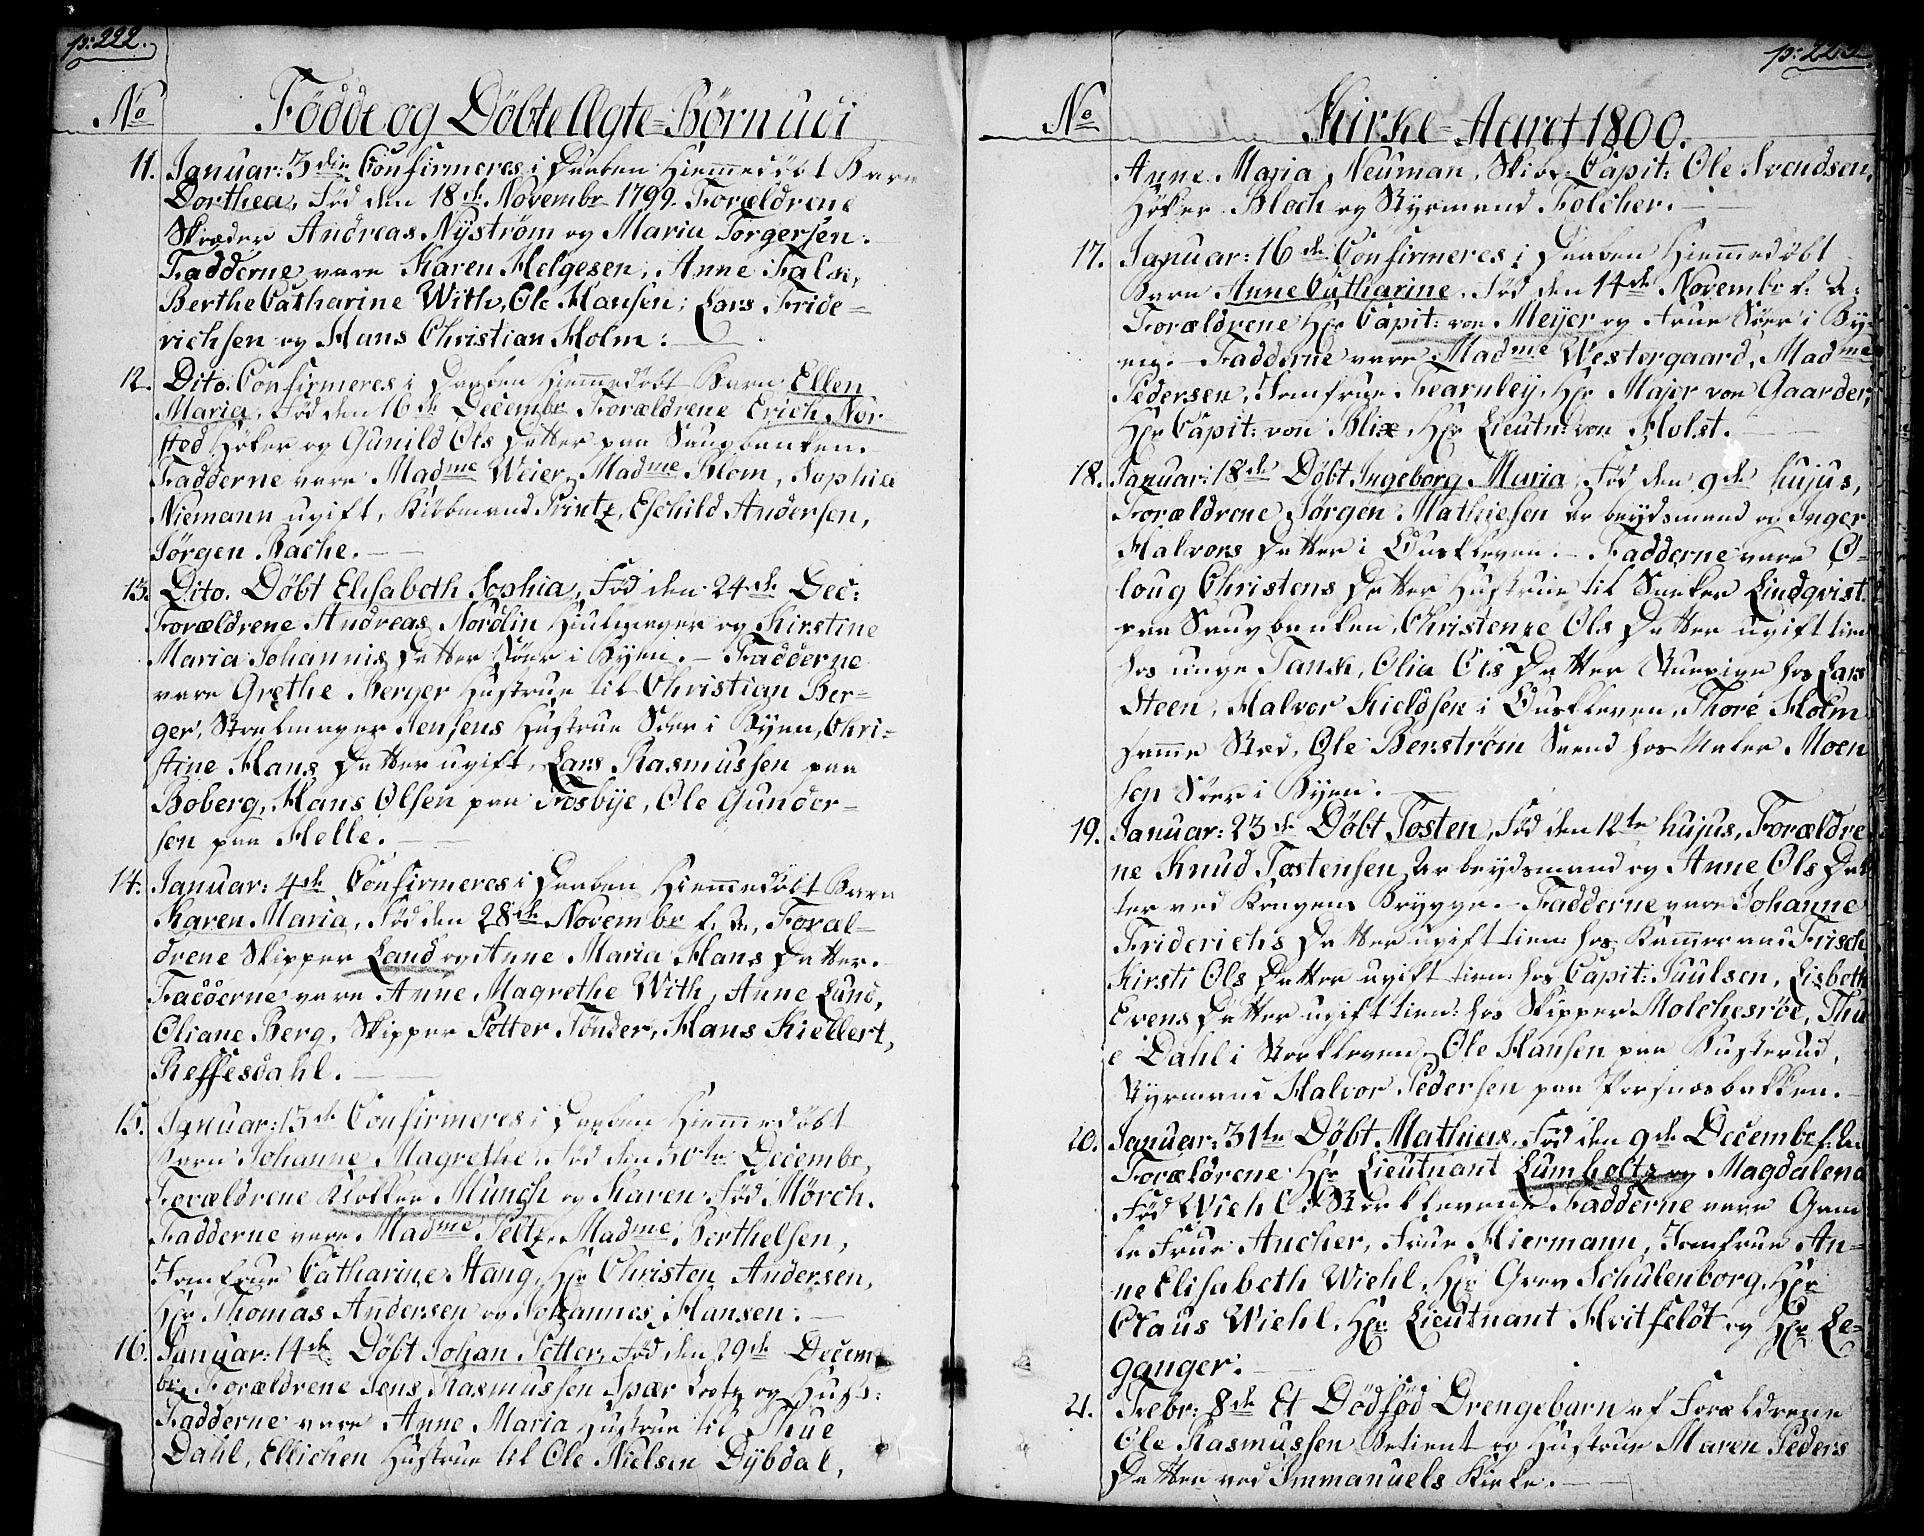 p: 222.
No Fødde og Døbte Ægte=Børn udi
11. Januar: 3die Confirmeres i Daaben Hiemmedøbt Barn
Dorthea, Fød den 18de Novembr 1799. Forældrene
Skræder Andreas Nyström og Maria Torgersen.
Fadderne vare Karen Helgesen, Anne Faln,
Berthe Catharine With, Ole Hansen, Lars Fride=
richsen og Hans Christian Holm:
12. Dito. Confirmeres i Daaben Hiemmedøbt Barn Ellen
Maria, Fød den 16de Decembr Forældrene Erich Nor
sted Høker og Gunild Ols Datter paa Saugbanken.
Fadderne vare Madme Weier, Madme Blom, Sophia
Niemann ugift, Kiøbmand Printz, Eschild Andersen,
Jørgen Bache.
13. Dito. Døbt Elisabeth Sophia, Fød den 24de Dec:
Forældrene Andreas Nordlin Hiulmager og Kirstine
Maria Johannis Datter Søer i Byen. — Fadderne
vare Grethe Berger Hustrue til Christian Ber=
ger, Stoelmager Jensens Hustrue Søer i Byen, Chri=
stine Hans Datter ugift, Lars Rasmussen paa
Boberg, Hans Olsen paa Fosbye, Ole Gunder=
sen paa Helle.
14. Januar: 4de Confirmeres i Daaben Hiemmedøbt Barn
Karen Maria, Fød den 28de Novembr f. A., Foræl=
drene Skipper Land og Anne Maria Hans Datter.
Fadderne vare Anne Magrethe With, Anne Lund,
Oliane Berg, Skipper Petter Tønder, Hans Kiellert,
Reffesdahl.
15. Januar: 13de Confirmeres i Daaben Hiemmedøbt
Barn Johanne Magrethe, Fød den 30te Decembr,
Forældrene Munch og Karen Fød Mörch.
Fadderne vare Madme Peltz, Madme Berthelsen,
Jomfrue Catharine Stang, Hr Christen Andersen,
Hr Thomas Andersen og Johannes Hansen.
16. Januar: 14de Døbt Johan Petter, Fød den 29de Decem
br, Forældrene Jens Rasmussen og Hust:
Fadderne vare Anne Maria Hustrue til Thue
Dahl, Ellichen Hustrue til Ole Nielsen Dybdal,
p: 223.
No Kirke=Aaret 1800.
Anne Maria Neuman, Skibs-Capit: Ole Svendsen,
Høker Bloch og Styrmand Folcher.
17. Januar: 16de Confirmeres i Daaben Hiemmedøbt
Barn Anne Catharine, Fød den 14de Novembr f. A:
Forældrene Hr Capit: von Meijer og Frue Søer i By=
en. — Fadderne vare Madme Westergaard, Madme
Pedersen, Jomfrue Fearnley, Hr Major von Gaarder,
Hr Capit: von Blix, Hr Lieutn: von Holst.
18. Januar: 18de Døbt Ingeborg Maria, Fød den 9de hujus,
Forældrene Jørgen Mathiesen Arbeydsmand og Inger
Halvors Datter i Øuskleven. — Fadderne vare O=
loug Christens Datter Hustrue til Sneker Lindqvist
paa Saugbanken, Christense Ols Datter ugift tien
hos unge Tank, Olia Ols Datter Stuepige hos Lars
Steen, Halvor Kieldsen i Øuskleven, Thore Holm
samme Sted, Ole Benström Svend hos Maler Moen
sen Søer i Byen.
19. Januar: 23de Døbt Tosten, Fød den 12te hujus, Forældre
ne Knud Tostensen Arbeydsmand og Anne Ols Dat
ter ved Krugens Brygge. — Fadderne vare Johanne
Friderichs Datter ugift tien: hos Kammerraad Frisch
Kirsti Ols Datter ugift tien: hos Capit: Puulsen, Lisbeth
Evens Datter ugift tien: hos Skipper Molchesröe, Thu
e Dahl i Storkleven, Ole Hansen paa Buskerud,
Styrmand Halvor Pedersen paa Porsnesbakken.
20. Januar: 31te Døbt Mathias, Fød den 9de Decembr f: A:
Forældrene Hr Lieutnant Lumholtz og Magdalena
Fød Wiehl i Storkleven. Fadderne vare Gam
le Frue Ancher, Frue Hiermann, Jomfrue An=
ne Elisabeth Wiehl, Hr Grev Schulenborg, Hr
Claus Wiehl, Hr Lieutnant Hvitfeldt og Hr Le=
ganger.
21. Febr: 8de Et Dødfød Drengebarn af Forældrene
Ole Rasmussen Betient og Hustrue Maren Peders
Datter ved Immanuels Kirke.